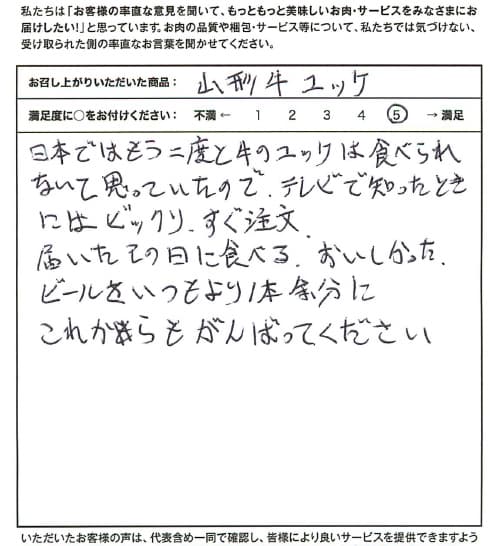 私たちは「お客様の率直な意見を聞いて、もっともっと美味しいお肉・サービスをみなさまにお
届けしたい!」と思っています。お肉の品質や梱包・サービス等について、私たちでは気づけない、
受け取られた側の率直なお言葉を聞かせてください。
お召し上がりいただいた商品: 山形牛ユッケ
満足度に○をお付けください: 不満 ← 1 2 3 4 5 → 満足
日本ではもう二度と牛のユッケは食べられ
ないて思っていたので、テレビで知ったとき
にはビックリ、すぐ注文、
届いたその日に食べる、おいしかった、
ビールをいつもより1本余分に
これからもがんばってください
いただいたお客様の声は、代表含め一同で確認し、皆様により良いサービスを提供できますよう